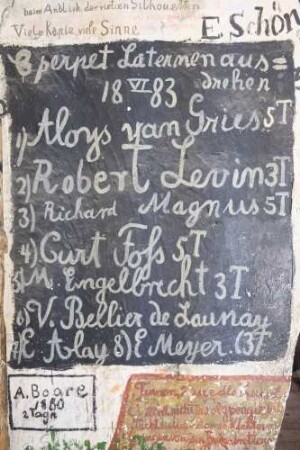 beim Anblick der vielen Silhouetten
Viele Köpfe, viele Sinne
E. Schön
E perpet Laternenaus=
18 VI 83 drehen
1) Aloys van Gries 5T
2) Robert Levin 3T
3) Richard Magnus 5T
4) Curt Foss 5T
5) M. Engelbrecht 3T.
6) V. Bellier de Launay
7) E Ablay 8) E Meyer. (3T
A. Boare
1880
2 Tage